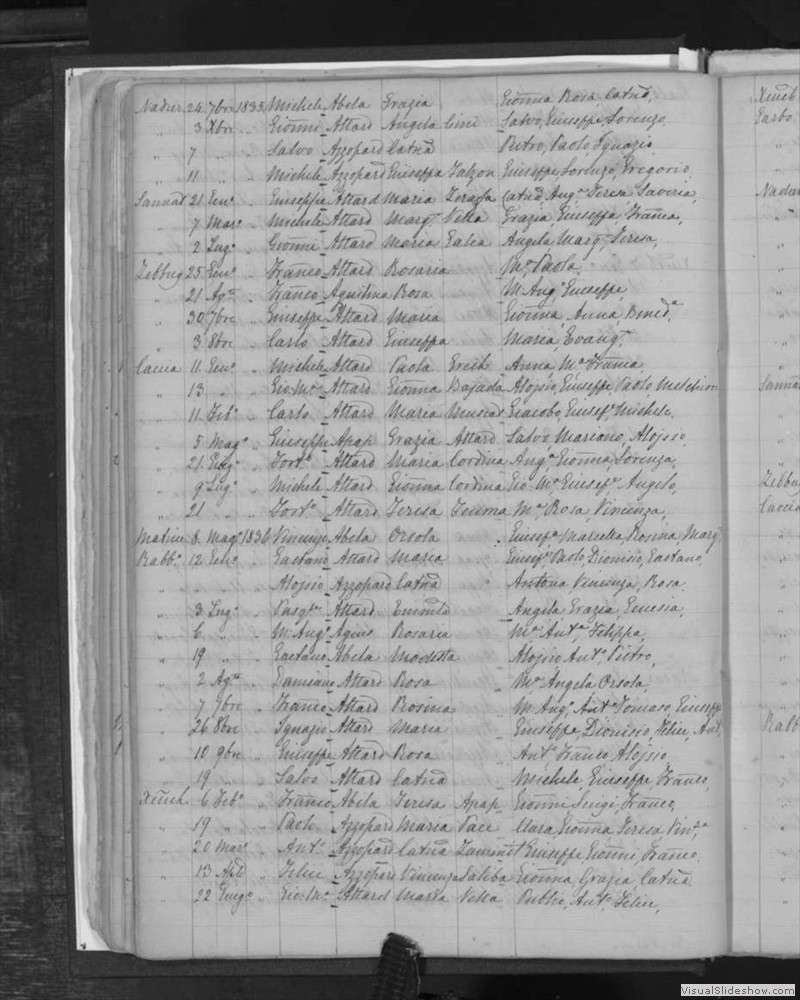 Nadur 24 7bre 1835 Michele Abela Grazia Gionna Rosa Catna,
" 3 Xbre " Gionni Attard Angela Cini Salvo, Giuseppe, Lorenzo,
" 7 " " Salvo Azzopard Catna Pietro, Paolo, Ignazio
" 11 " " Michele Azzopard Giuseppa Falzon Giuseppe, Lorenzo, Gregorio,
Sannat 21 Genº " Giuseppe Attard Maria Catna, Angª Teresa, Saveria,
" 7 Marº " Michele Attard Margª Vella Grazia, Giuseppa, Franca,
" 2 Lugº " Gionni Attard Maria Galea Angela, Margª Teresa,
Zebbug 25 Genº " Franco Attard Rosaria Mª Paola,
" 21 Agto " Franco Aquilina Rosa M. Angº Giuseppe,
" 30 7bre " Giuseppe Attard Maria Gionna Anna Bened.a
" 3 8bre " Carlo Attard Giuseppa Maria, Evangª
Caccia 11 Genº " Michele Attard Paola Grech Anna, Mª Franca,
" 13 " " Gio Mª Attard Gionna Bajada Aloysio, Giuseppe, Paolo Melchior
" 11 Febº " Carlo Attard Maria Muscat Giacobo, Giusepe Michele,
" 5 Magº " Giuseppe Apap Grazia Attard Salvo Mariano, Aloysio
" 21 Giugº " Fortº Attard Maria Cordina Angª Gionna, Lorenza,
" 9 Lugº " Michele Attard Gionna Cordina Gio Mª Giusepe Angelo,
" 21 " " Fortº Attard Teresa Mª Rosa, Vincenza,
Matrice 8 Magº 1836 Vincenzo Abela Orsola Giusepa Marietta, Rosina, Margª
Rabbº 12 Genº " Gaetano Attard Maria Giusepe Paolo, Dionisio, Gaetano,
" " " Aloysio Azzopard Catna Antona, Vincenza, Rosa
" 3 Lugº " Pasqle Attard Angela Grazia,
" 6 " " M. Angº Agius Rosaria Mª Antª Filippa,
" 19 " " Gaetano Abela Modesta Aloysio Antº Pietro,
" 2 Agto " Damiano Attard Rosa Mª Angela Orsola,
" 7 7bre " Franco Attard Rosina M. Angº Antº Tomaso, Giuseppe
" 26 8bre " Ignazio Attard Maria Giuseppe, Dionisio, Felice, Antº,
" 10 9bre " Giuseppe Attard Rosa Antº Franco Aloysio
" 19 " " Salvo Attard Catna Michele, Giuseppe, Franco,
Xeuch. 6 Febº " Franco Abela Teresa Apap Gionni Luigi, Franco,
" 19 " " Paolo Azzopard Maria Pace Clara, Gionna, Teresa, Vinza
" 20 Marº " Antº Azzopard Catna Zammit Giuseppe, Gionni, Franco,
" 13 Aple " Felice Azzopard Vincenza Saliba Gionna, Grazia, Catna
" 22 Giugº " Gio Mª Attard Maria Vella Publio, Antº Felice,
Xeuch
Garbo
Nadur
Sannat
Zebbug
Caccia
Rabb
VisualSlideshow.com